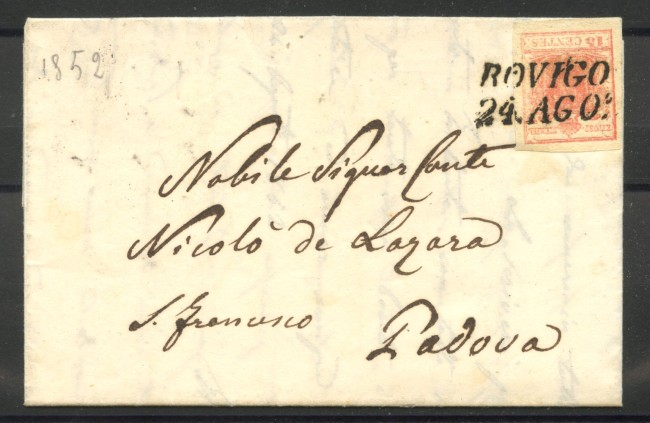 1852
15 CENTES
ROVIGO
24. AGO.
Nobile Signor Conte
Nicolò de Lazara
S. Francesco
Padova